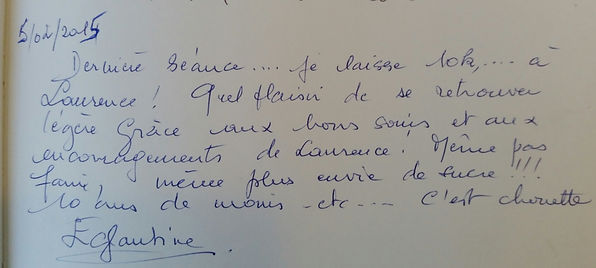 5/02/2015
Dernière séance.... je laisse 10k,.... à
Laurence! Quel plaisir de se retrouver
légère Grâce aux bons soins et aux
encouragements de Laurence! Même pas
faim, même plus envie de sucre!!!
10 ans de moins - etc.... C'est chouette
Eglantine